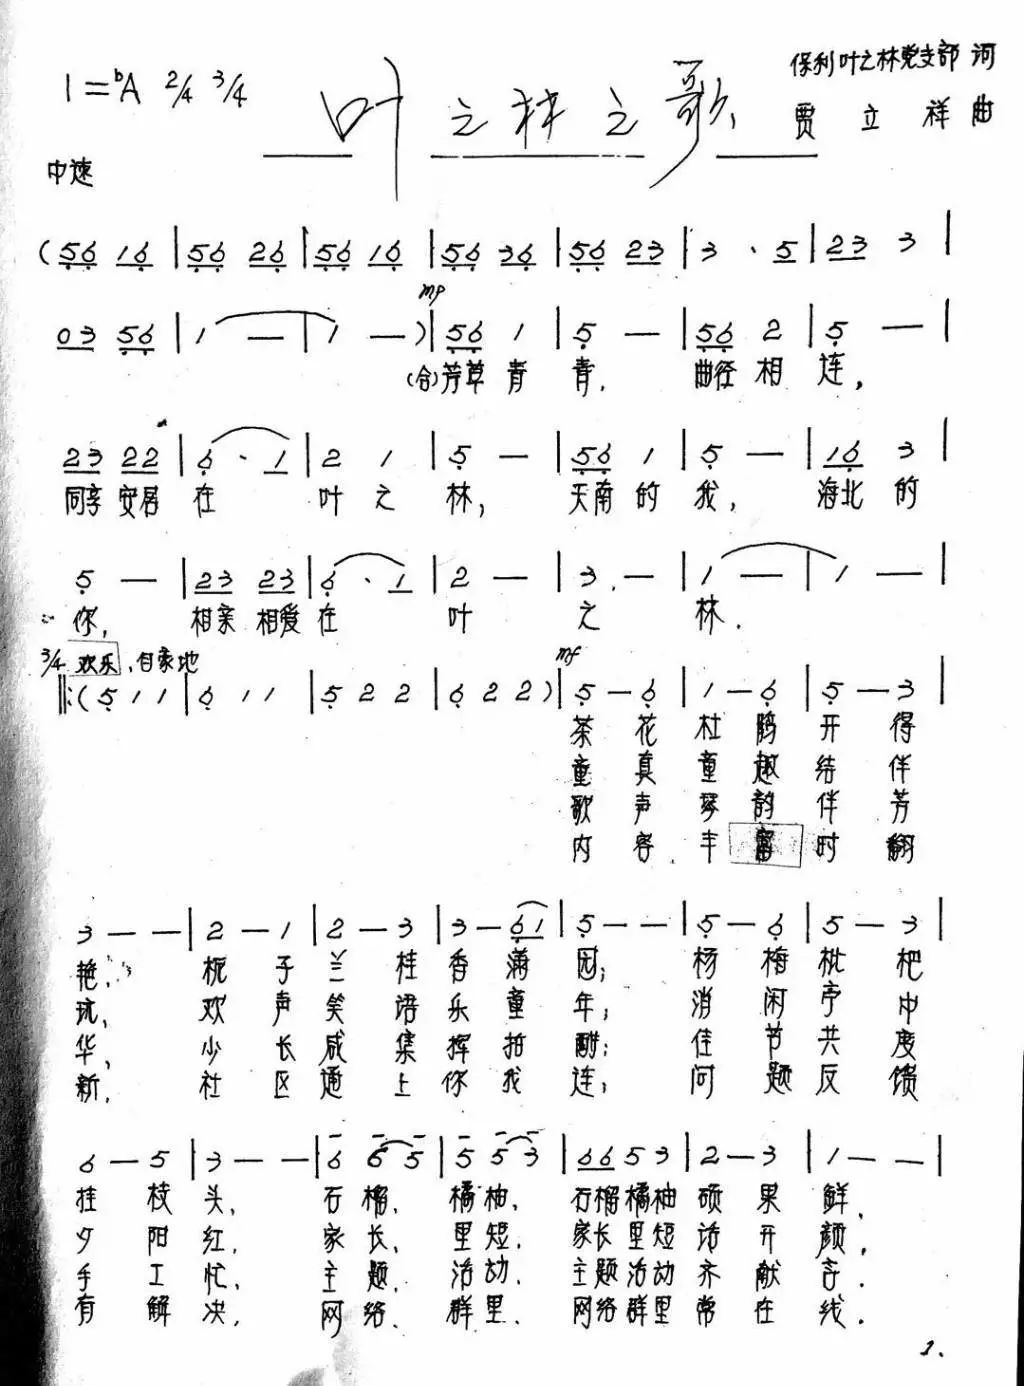 1=♭A 2/4 3/4
叶之林之歌
保利叶之林党支部 词
贾立祥 曲
中速
(56 16 | 56 26 | 56 16 | 56 36 | 56 23 | 3 · 5 | 23 3 |
mp
03 56 | 1 — | 1 — ) | 56 1 | 5 — | 56 2 | 5 — |
(合)芳草青 青, 曲径相 连,
23 22 | 6 · 1 | 2 1 | 5 — | 56 1 | 5 — | 16 3 |
同享安居 在 叶之 林, 天南的 我, 海北的
5 — | 23 23 | 6 · 1 | 2 — | 3 — | 1 — | 1 — |
你, 相亲相爱 在 叶 之 林.
3/4 欢乐,自豪地
mf
‖:(5 1 1 | 6 1 1 | 5 2 2 | 6 2 2 ) | 5 — 6 | 1 — 6 | 5 — 3 |
茶 花 杜 鹃 开 得
童 真 童 趣 结 伴
歌 声 琴 韵 伴 芳
内 容 丰 富 时 翻
3 — — | 2 — 1 | 2 — 3 | 3 — 61 | 5 — — | 5 — 6 | 5 — 3 |
艳, 栀 子 兰 桂 香 满 园; 杨 梅 枇 杷
玩, 欢 声 笑 语 乐 童 年; 消 闲 亭 中
华, 少 长 咸 集 挥 拍 酣; 佳 节 共 度
新, 社 区 通 上 你 我 连; 问 题 反 馈
6 — 5 | 3 — — | 6 6 5 | 5 5 3 | 66 5 3 | 2 — 3 | 1 — — |
挂 枝 头, 石 榴, 橘 柚, 石榴橘柚 硕 果 鲜,
夕 阳 红, 家 长, 里 短, 家长里短 话 开 颜,
手 工 忙, 主 题, 活 动, 主题活动 齐 献 言.
有 解 决, 网 络, 群 里, 网络群里 常 在 线.
1.